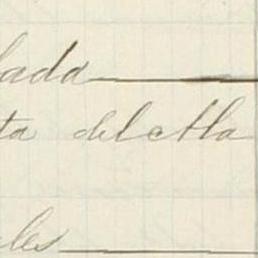 lada
ta del Atla
les